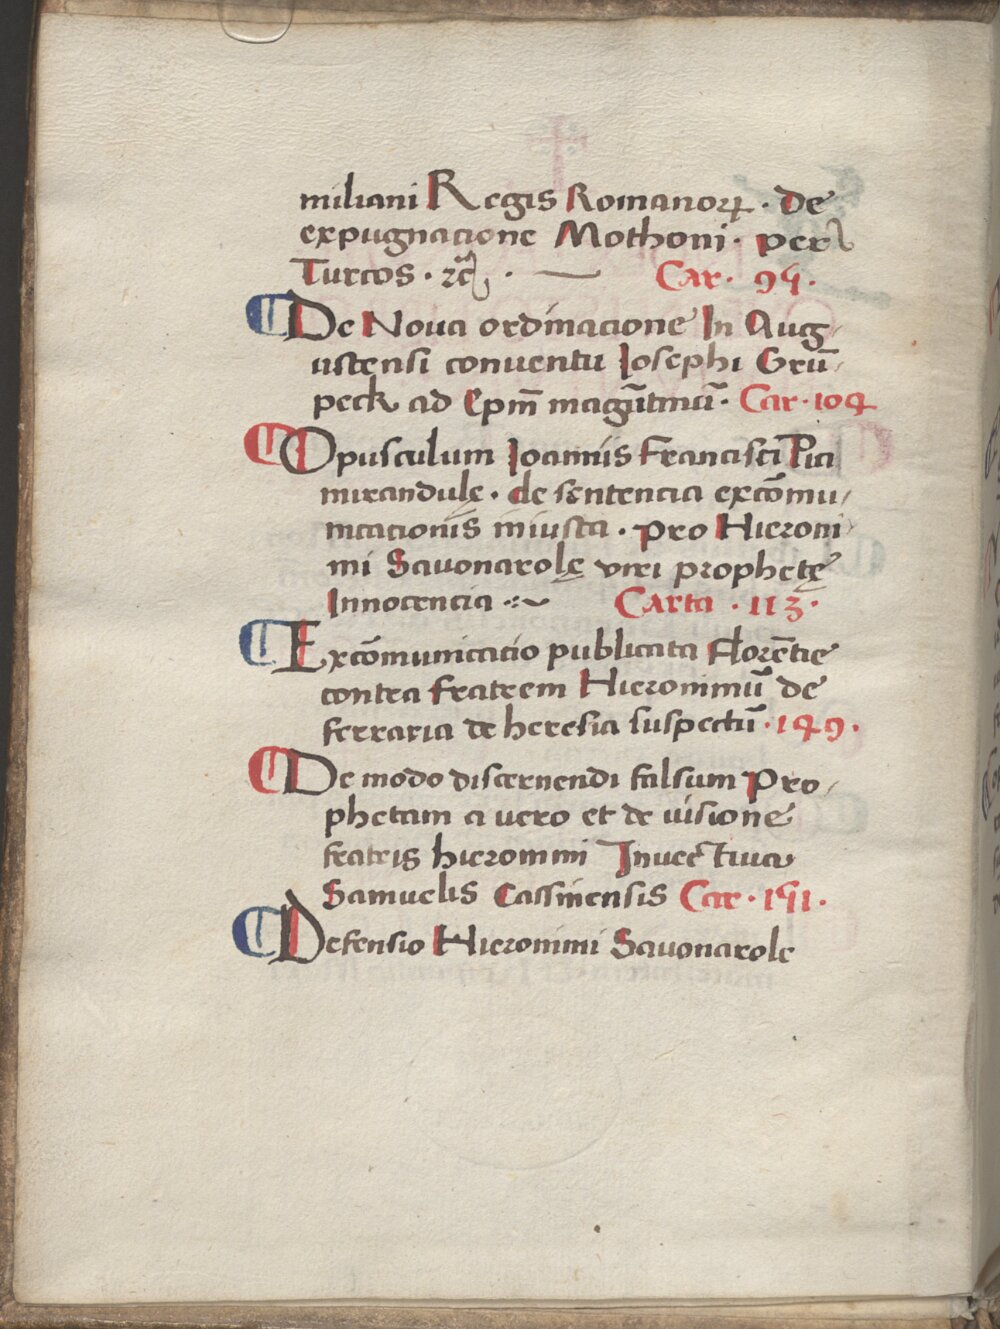 miliani Regis Romanoꝝ · De
expugnacione Mothoni · per
Turcos · ⁊cͣ · — Car · 95 ·
De Noua ordinacione In Aug-
ustensi conuentu Iosephi Grū-
peck ad Epm̄ magūtinū · Car · 104
Opusculum Ioannis Francisci Pici
mirandulę · de sentencia excōmu/
nicacionis iniusta · pro Hieroni
mi Sauonarolę viri prophetę
Innocencia ·:~ Carta · 113 ·
Excōmunicacio publicata Florētie
contra fratrem Hieronimū de
ferraria de heresia suspectū · 149 ·
De modo discernendi falsum Pro/
phetam a uero et de uisione
fratris hieronimi Inuectiua
Samuelis Cassinensis Car · 151 ·
Defensio Hieronimi Sauonarole